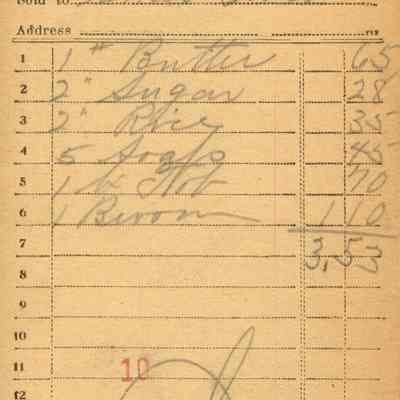 Sold to
Address
1 1 # Butter 65
2 2 " Sugar 28
3 2 " Rice 35
4 5 Soaps 45
5 1 70
6 1 Broom 1 10
7 3,53
8
9
10
11 10
12